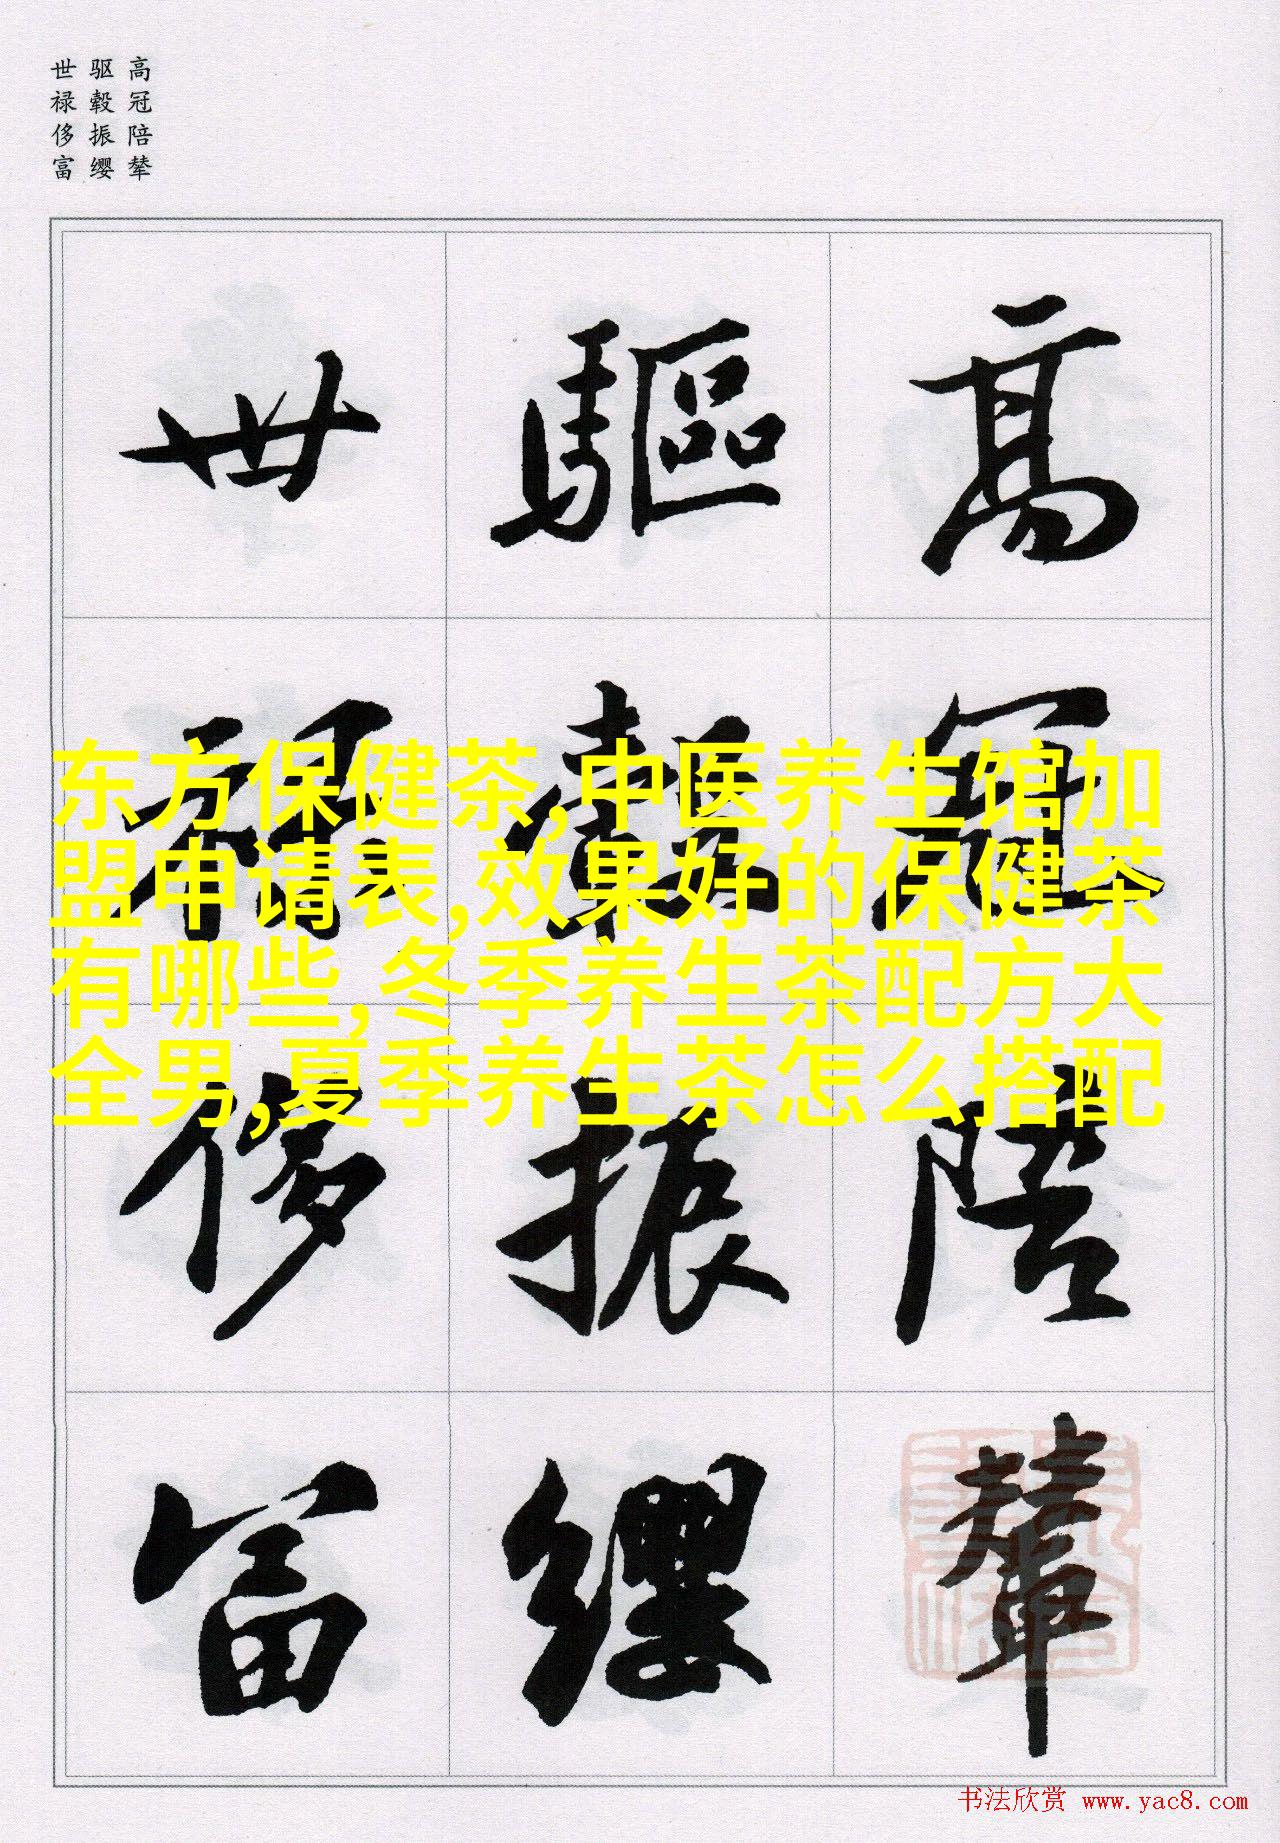 高冠陪辇
驱毂振缨
世禄侈富
高冠陪輦
驅轂振纓
世祿侈富
东方保健茶,中医养生馆加
盟申请表,效果好的保健茶
有哪些,冬季养生茶配方大
全男,夏季养生茶怎么搭配
书法欣赏 www.yac8.com